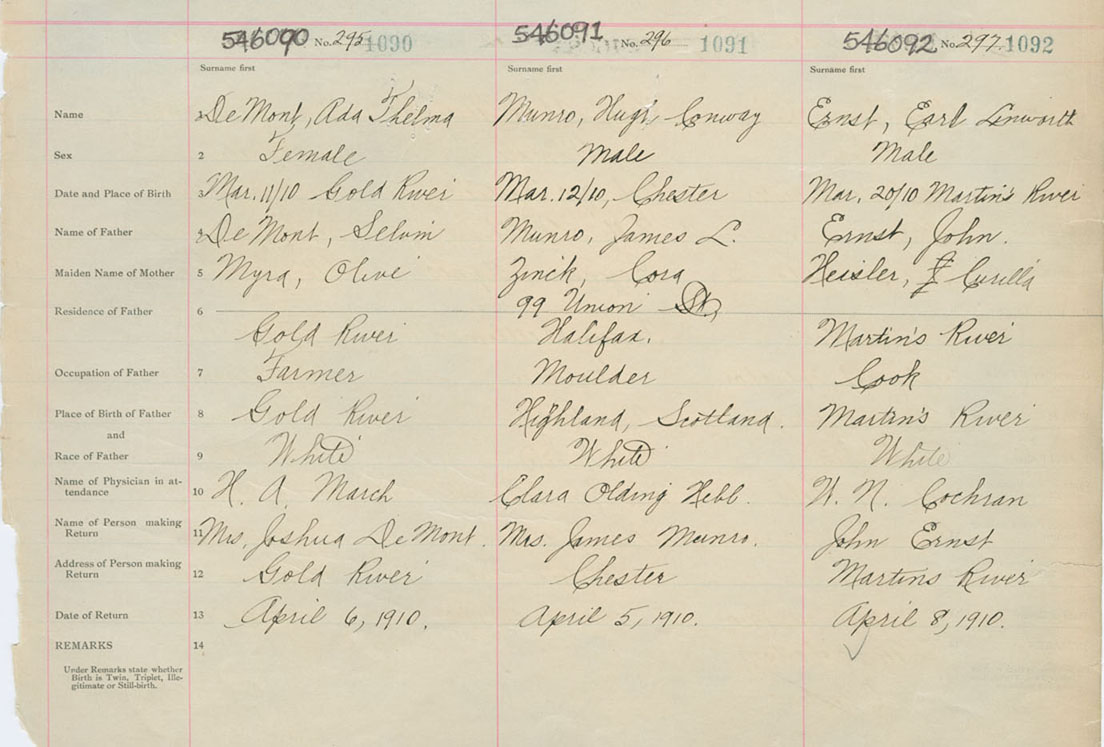 546090 No. 295 1090 546091 No. 296 1091 546092 No. 297 1092
Surname first Surname first Surname first
Name 1 De Mont, Ada Thelma Munro, Hugh Conway Ernst, Earl Lenworth
Sex 2 Female Male Male
Date and Place of Birth 3 Mar. 11/10 Gold River Mar. 12/10, Chester Mar. 20/10 Martin's River
Name of Father 4 De Mont, Selvin Munro, James L. Ernst, John.
Maiden Name of Mother 5 Myra, Olive Zinck, Cora Heisler,
99 Union St,
Residence of Father 6
Gold River Halifax. Martin's River
Occupation of Father 7 Farmer Moulder Cook
Place of Birth of Father 8 Gold River Highland, Scotland. Martin's River
and
Race of Father 9 White White White
Name of Physician in at-
tendance 10 H. A. March Clara Olding Hebb. W. N. Cochran
Name of Person making
Return 11 Mrs. Joshua De Mont. Mrs. James Munro. John Ernst
Address of Person making
Return 12 Gold River Chester Martins River
Date of Return 13 April 6, 1910. April 5, 1910. April 8, 1910.
REMARKS 14
Under Remarks state whether
Birth is Twin, Triplet, Ille-
gitimate or Still-birth.